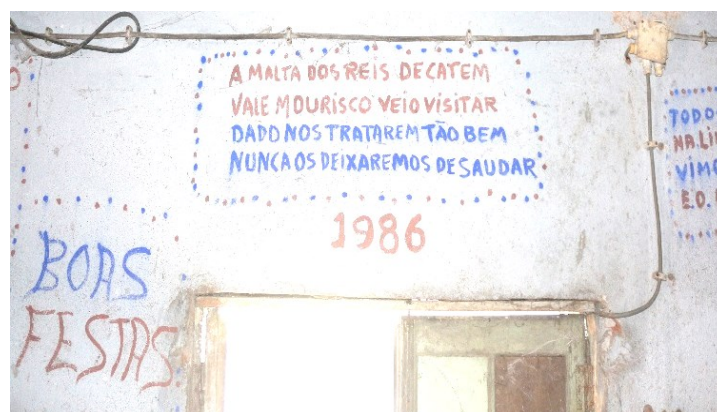 A MALTA DOS REIS DE CATEM
VALE MOURISCO VEIO VISITAR
DADO NOS TRATAREM TÃO BEM
NUNCA OS DEIXAREMOS DE SAUDAR
1986
BOAS
FESTAS
TODO
NA LI
VIMO
E.O.